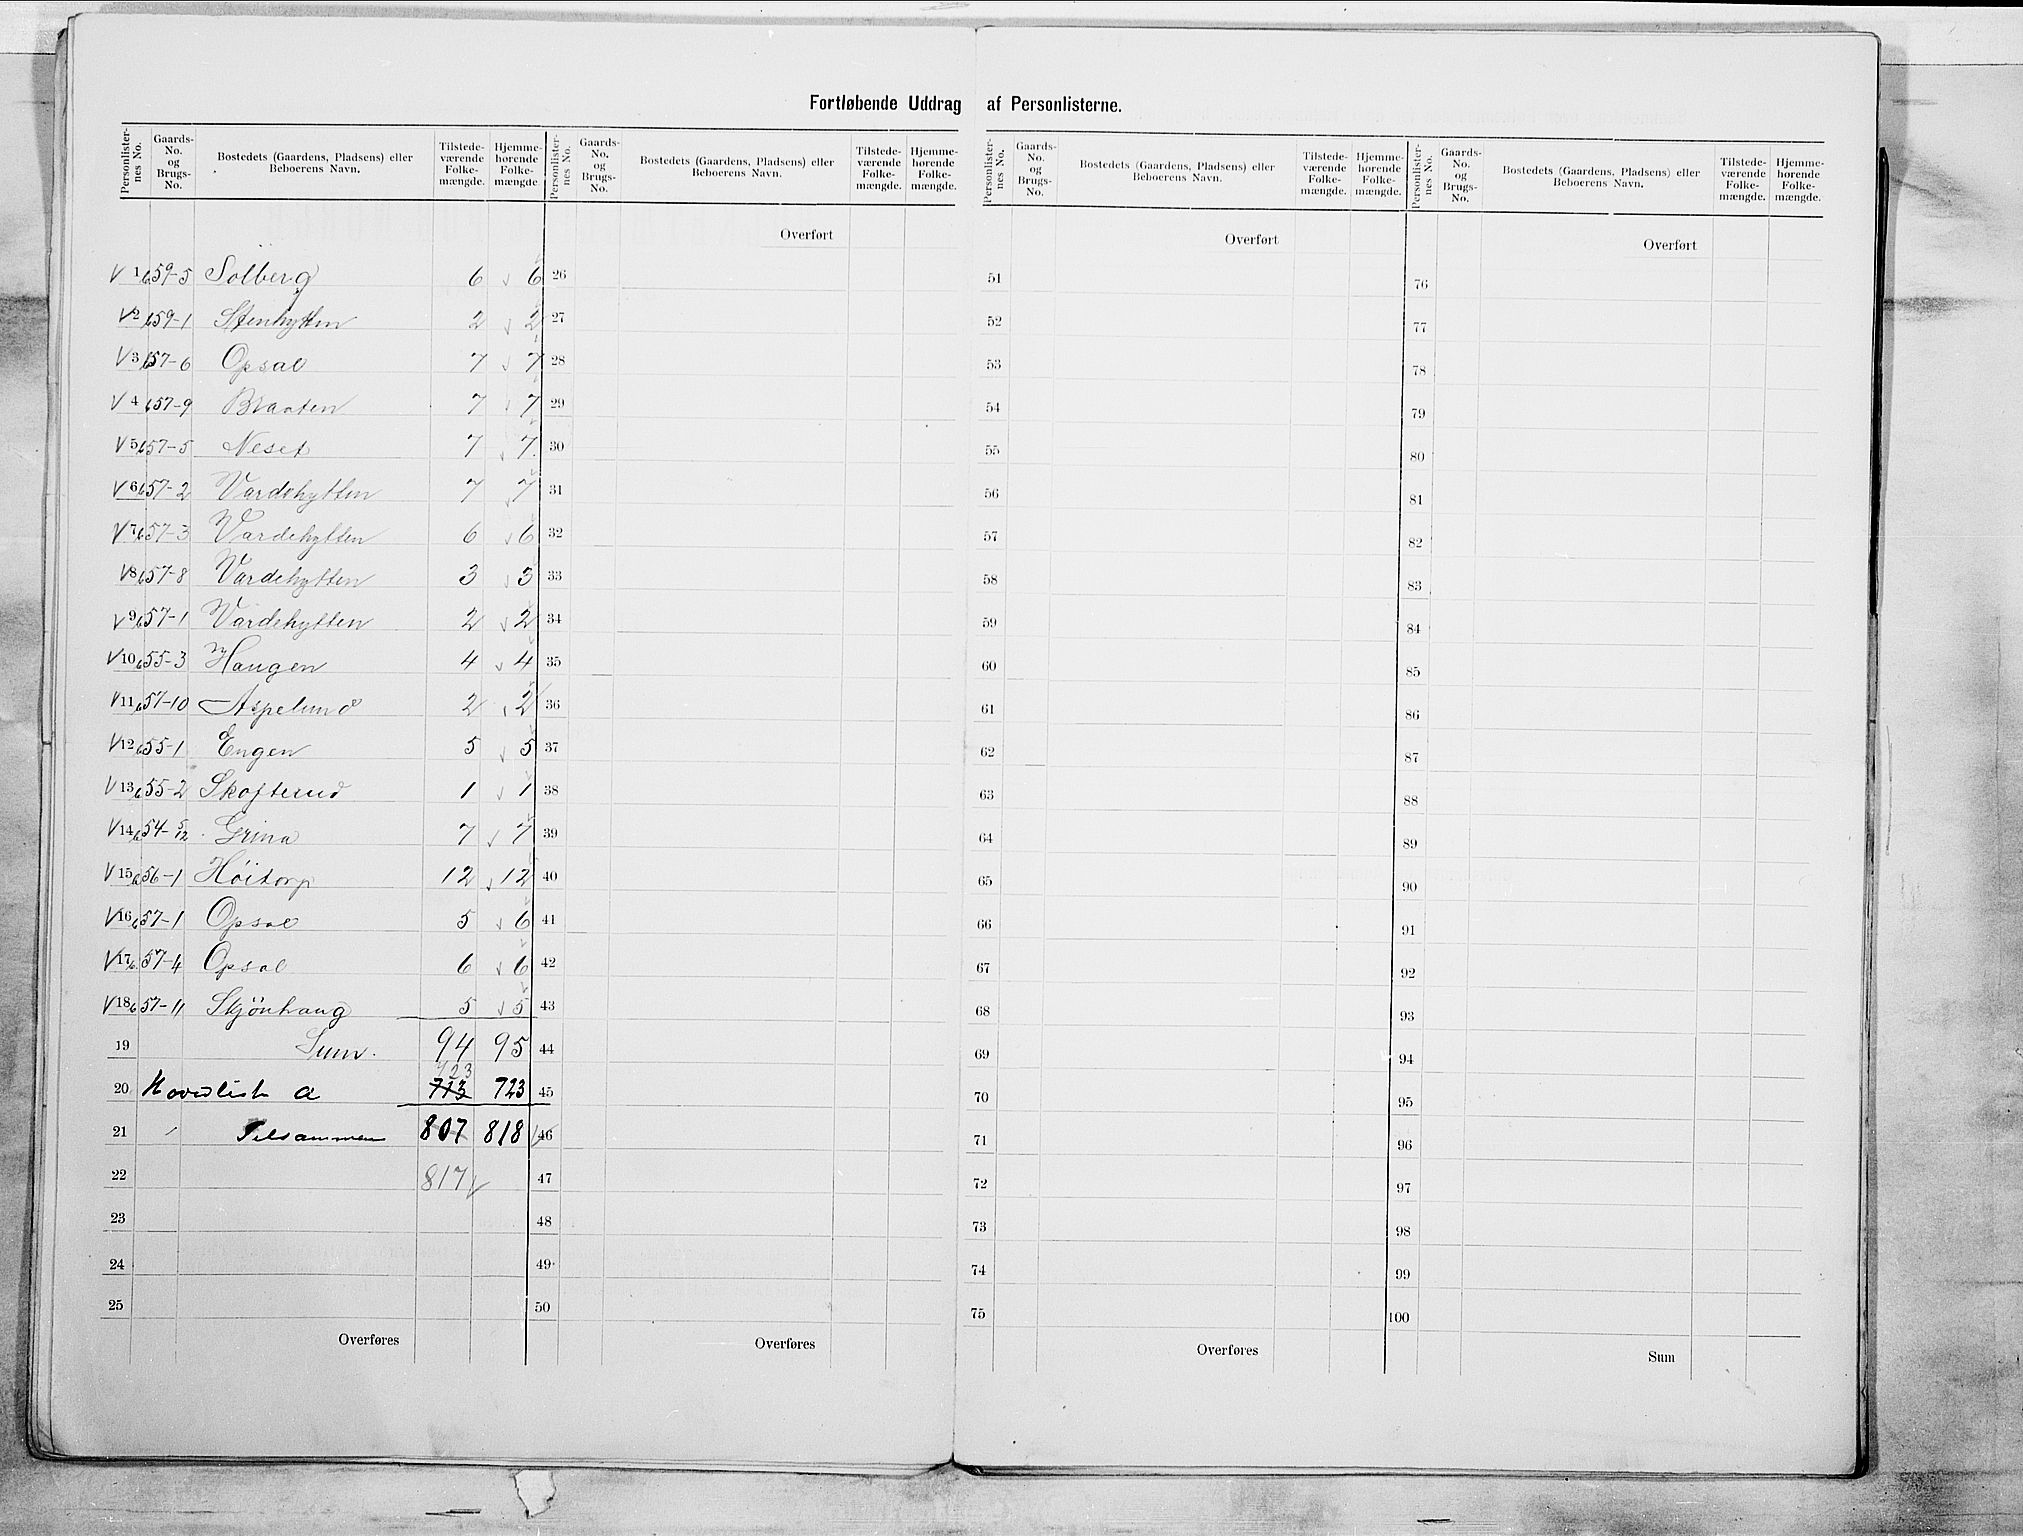 Fortløbende Uddrag af Personlisterne.
Personlisternes No. Gaards-No. og Brugs-No. Bostedets (Gaardens, Pladsens) eller Beboerens Navn. Tilstedeværende Folkemængde. Hjemmehørende Folkemængde. Personlisternes No. Gaards-No. og Brugs-No. Bostedets (Gaardens, Pladsens) eller Beboerens Navn. Tilstedeværende Folkemængde. Hjemmehørende Folkemængde. Personlisternes No. Gaards-No. og Brugs-No. Bostedets (Gaardens, Pladsens) eller Beboerens Navn. Tilstedeværende Folkemængde. Hjemmehørende Folkemængde. Personlisternes No. Gaards-No. og Brugs-No. Bostedets (Gaardens, Pladsens) eller Beboerens Navn. Tilstedeværende Folkemængde. Hjemmehørende Folkemængde.
Overført Overført Overført
V 1 659-5 Solberg 6 6 26 51 76
V 2 659-1 Stenhytten 2 2 27 52 77
V 3 657-6 Opsal 7 7 28 53 78
V 4 657-9 Braaten 7 7 29 54 79
V 5 657-5 Neset 7 7 30 55 80
V 6 657-2 Vardehytten 7 7 31 56 81
V 7 657-3 Vardehytten 6 6 32 57 82
V 8 657-8 Vardehytten 3 3 33 58 83
V 9 657-1 Vardehytten 2 2 34 59 84
V 10 655-3 Haugen 4 4 35 60 85
V 11 657-10 Aspelund 2 2 36 61 86
V 12 655-1 Engen 5 5 37 62 87
V 13 655-2 Skofterud 1 1 38 63 88
V 14 654-5/12 Grina 7 7 39 64 89
V 15 656-1 Höitorp 12 12 40 65 90
V 16 657-1 Opsal 5 6 41 66 91
V 17 657-4 Opsal 6 6 42 67 92
V 18 657-11 Skjönhaug 5 5 43 68 93
19 Sum. 94 95 44 69 94
723
20 Hovedliste a 713 723 45 70 95
21 Tilsammen 807 818 46 71 96
22 817 47 72 97
23 48 73 98
24 49 74 99
25 50 75 100
Overføres Overføres Overføres Sum